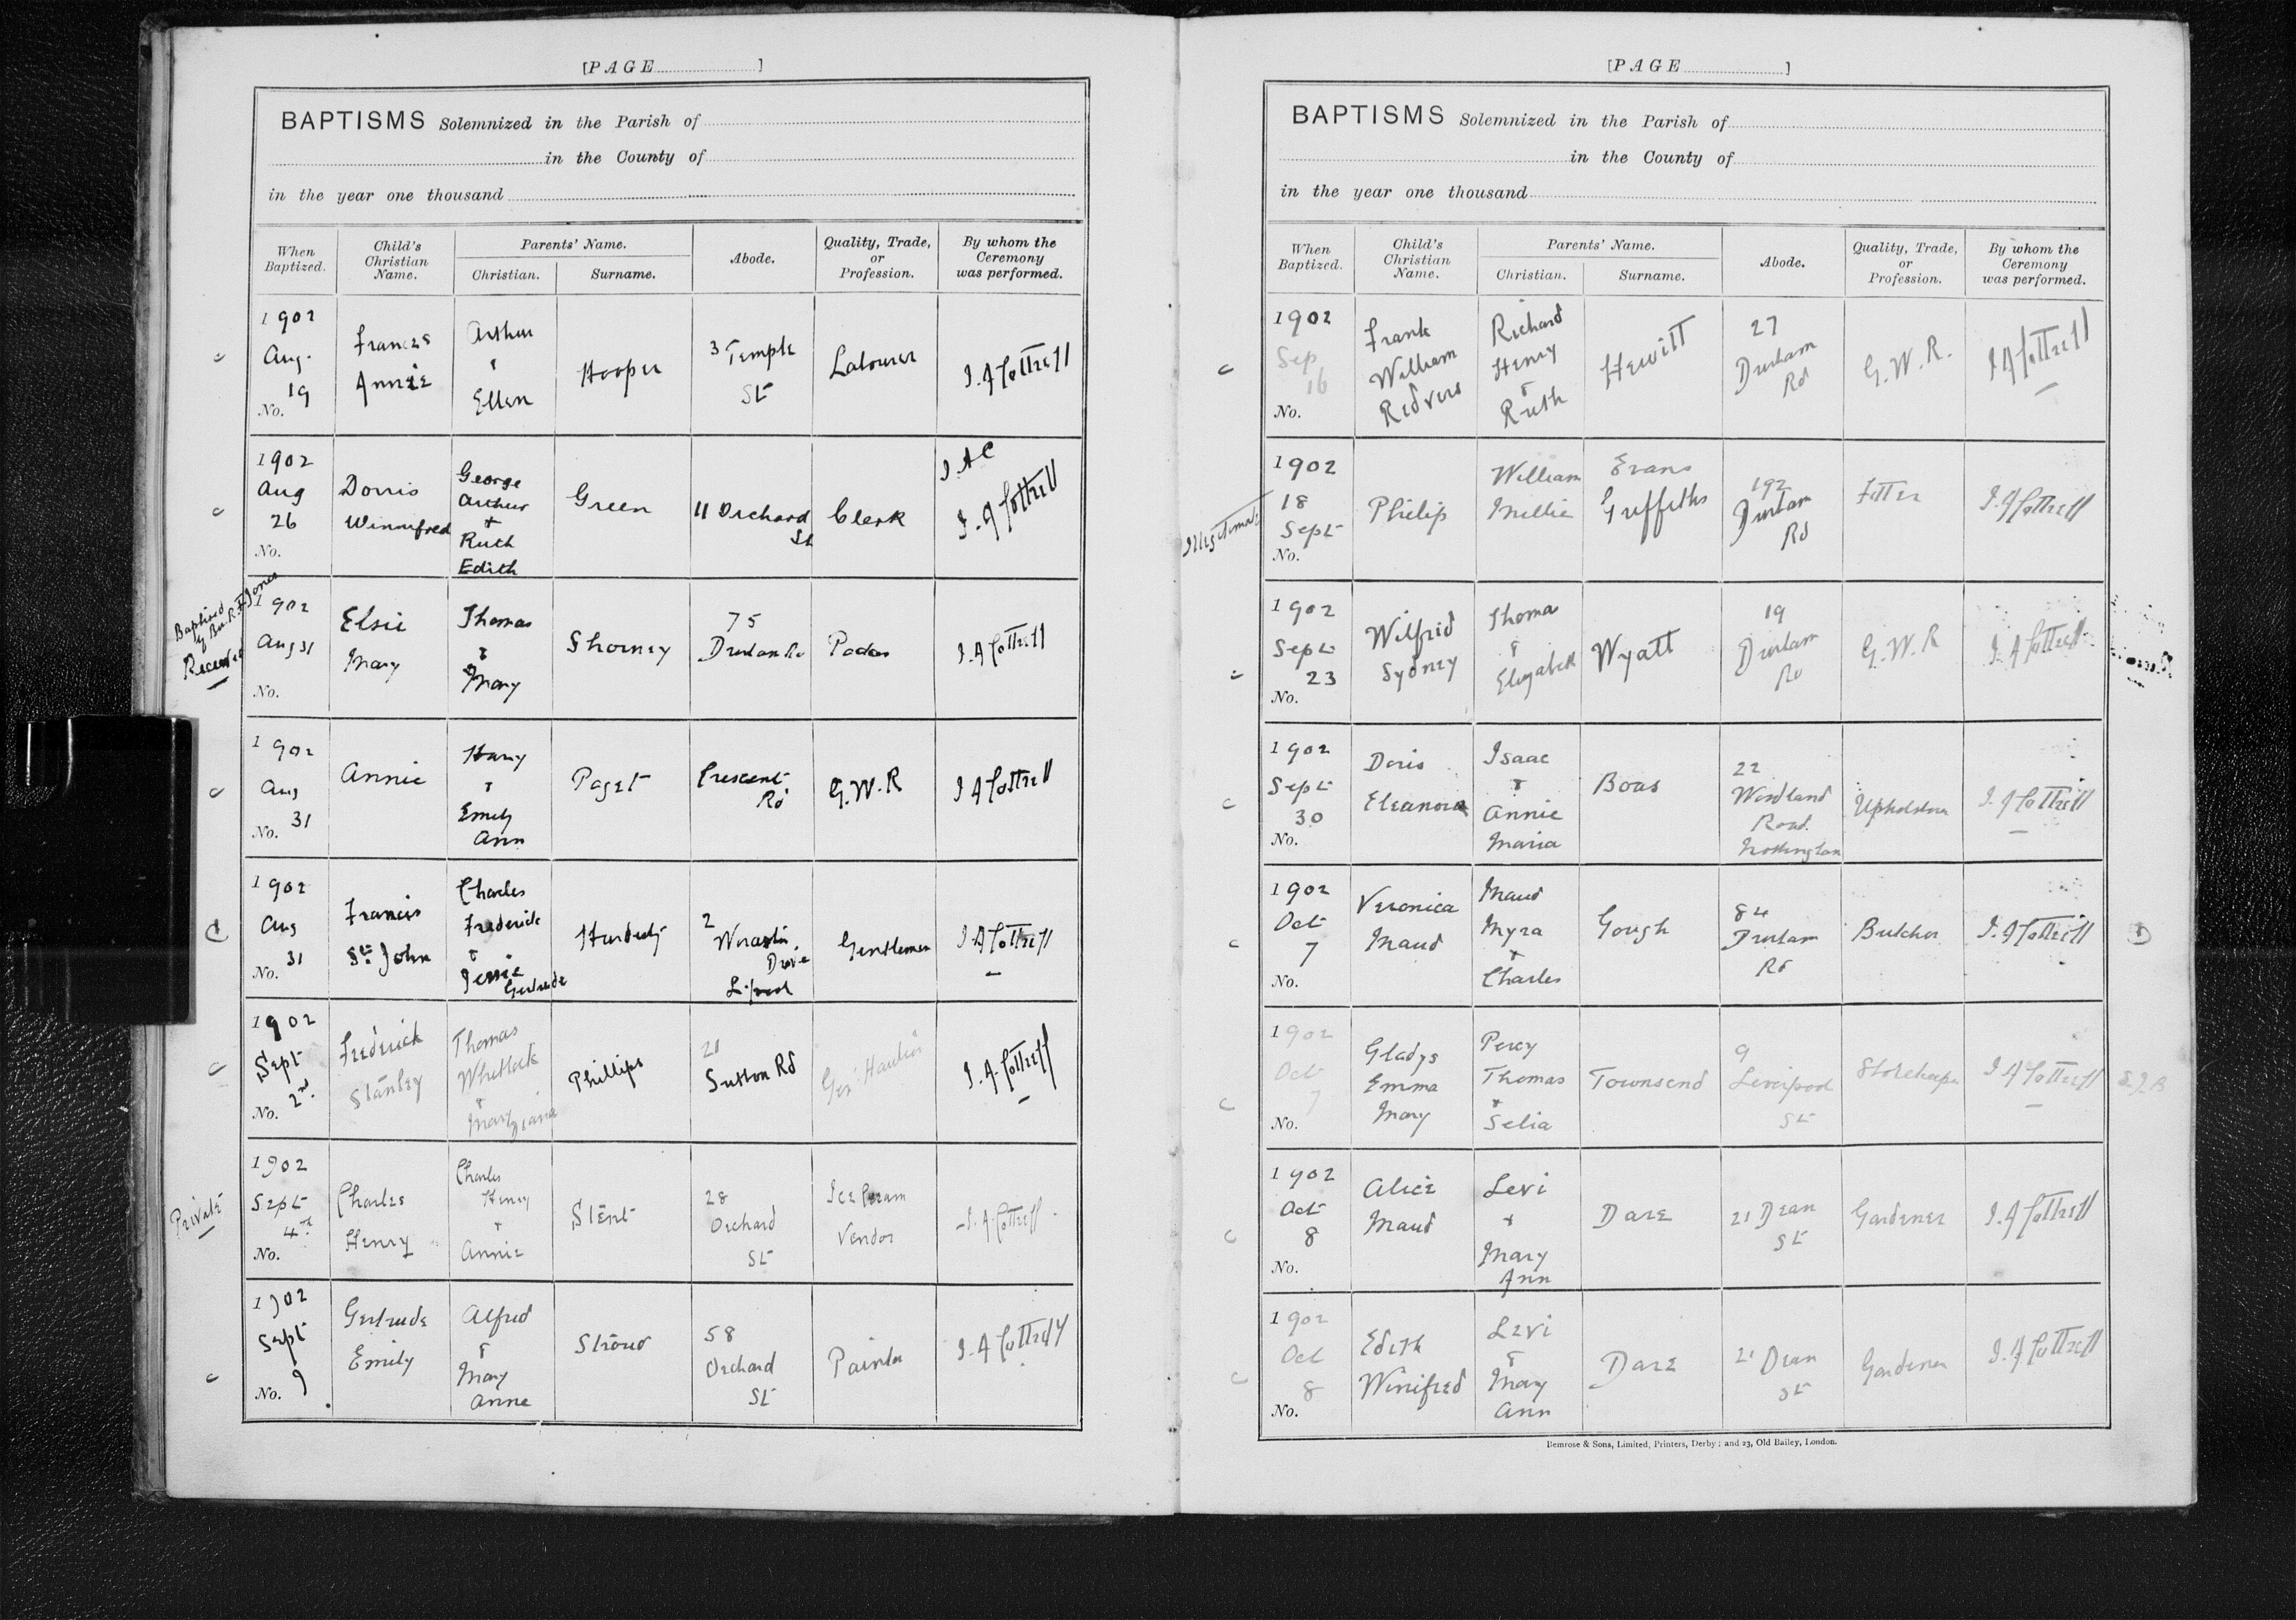 [PAGE ]
BAPTISMS Solemnized in the Parish of
in the County of
in the year one thousand
When Baptized.
Child's Christian Name.
Parents' Name.
Christian.
Surname.
Abode.
Quality, Trade, or Profession.
By whom the Ceremony was performed.
1902
Aug.
19
No.
Frances
Annie
Arthur
&
Ellen
Hooper
3 Temple
St
Labourer
I. A Cottrell
1902
Aug
26
No.
Dorris
Winnifred
George
Arthur
+
Ruth
Edith
Green
11 Orchard
St
Clerk
I A C
I. A Cottrell
Baptised
by
Jones
Received
1902
Aug 31
No.
Elsie
Mary
Thomas
&
Mary
75
Durham Rd
I. A Cottrell
1902
Aug
31
No.
Annie
Harry
&
Emily
Ann
Paget
Crescent
Rd
G. W. R
I A Cottrell
1902
Aug
31
No.
Francis
St. John
Charles
Frederick
&
Jessie
Gertrude
2
Drive
L'pool
Gentleman
I A Cottrell
1902
Sept
2nd
No.
Frederick
Stanley
Thomas
Whitlock
&
Mary
Phillips
21
Sutton Rd
I. A. Cottrell
Private
1902
Sept
4th
No.
Charles
Henry
Charles
Henry
+
Annie
Stent
28
Orchard
St
Ice Cream
Vendor
I. A. Cottrell
1902
Sept
9
No.
Gertrude
Emily
Alfred
&
Mary
Anne
Stroud
58
Orchard
St
Painter
I. A Cottrell
[PAGE ]
BAPTISMS Solemnized in the Parish of
in the County of
in the year one thousand
When Baptized.
Child's Christian Name.
Parents' Name.
Christian.
Surname.
Abode.
Quality, Trade, or Profession.
By whom the Ceremony was performed.
1902
Sep
16
No.
Frank
William
Redvers
Richard
Henry
&
Ruth
Hewitt
27
Durham
Rd
G. W. R.
I A Cottrell
Illegitimate
1902
18
Sept
No.
Philip
William
Millie
Evans
Griffiths
192
Durham
Rd
Fitter
I. A Cottrell
1902
Sept
23
No.
Wilfrid
Sydney
Thomas
&
Elizabeth
Wyatt
19
Durham
Rd
G. W. R
I. A Cottrell
1902
Sept
30
No.
Doris
Eleanora
Isaac
&
Annie
Maria
Boas
22
Woodland
Road
Nottingham
Upholsterer
I. A Cottrell
1902
Oct
7
No.
Veronica
Maud
Maud
Myra
+
Charles
Gough
84
Durham
Rd
Butcher
I. A Cottrell
1902
Oct
7
No.
Gladys
Emma
Mary
Percy
Thomas
+
Selia
Townsend
9
Liverpool
St
Storekeeper
I A Cottrell
1902
Oct
8
No.
Alice
Maud
Levi
+
Mary
Ann
Dare
21 Dean
St
Gardener
I. A Cottrell
1902
Oct
8
No.
Edith
Winifred
Levi
&
Mary
Ann
Dare
21 Dean
St
Gardener
I. A Cottrell
Bemrose & Sons, Limited, Printers, Derby; and 23, Old Bailey, London.